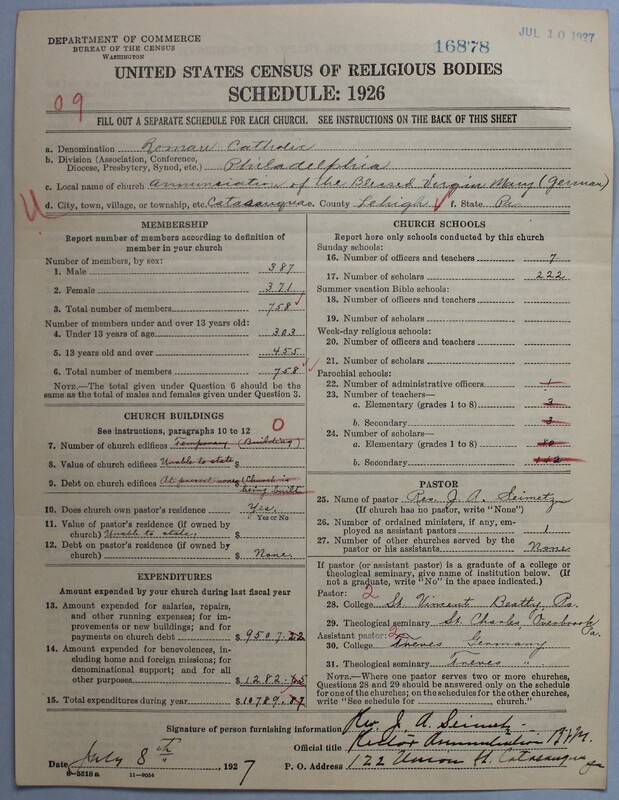 DEPARTMENT OF COMMERCE
BUREAU OF THE CENSUS
WASHINGTON
16878
JUL 10 1927
UNITED STATES CENSUS OF RELIGIOUS BODIES
SCHEDULE: 1926
09
FILL OUT A SEPARATE SCHEDULE FOR EACH CHURCH. SEE INSTRUCTIONS ON THE BACK OF THIS SHEET
a. Denomination Roman Catholic
b. Division (Association, Conference, Diocese, Presbytery, Synod, etc.) Philadelphia
c. Local name of church Annunciation of the Blessed Virgin Mary (German)
d. City, town, village, or township, etc. Catasauqua e. County Lehigh f. State Pa.
MEMBERSHIP
Report number of members according to definition of
member in your church
Number of members, by sex:
1. Male 387
2. Female 371
3. Total number of members 758
Number of members under and over 13 years old:
4. Under 13 years of age 303
5. 13 years old and over 455
6. Total number of members 758
NOTE.—The total given under Question 6 should be the
same as the total of males and females given under Question 3.
CHURCH BUILDINGS
See instructions, paragraphs 10 to 12
0
7. Number of church edifices Temporary (Building)
8. Value of church edifices Unable to state $
9. Debt on church edifices At present none $ (Church is
being built
10. Does church own pastor's residence Yes.
Yes or No
11. Value of pastor's residence (if owned by
church) Unable to state. $
12. Debt on pastor's residence (if owned by
church) $ None.
EXPENDITURES
Amount expended by your church during last fiscal year
13. Amount expended for salaries, repairs,
and other running expenses; for im-
provements or new buildings; and for
payments on church debt $ 9507.22
14. Amount expended for benevolences,
including home and foreign missions; for
denominational support; and for all
other purposes $ 1282.65
15. Total expenditures during year $ 10789.87
CHURCH SCHOOLS
Report here only schools conducted by this church
Sunday schools:
16. Number of officers and teachers 7
17. Number of scholars 222
Summer vacation Bible schools:
18. Number of officers and teachers
19. Number of scholars
Week-day religious schools:
20. Number of officers and teachers
21. Number of scholars
Parochial schools:
22. Number of administrative officers 1
23. Number of teachers—
a. Elementary (grades 1 to 8) 3
b. Secondary 3
24. Number of scholars—
a. Elementary (grades 1 to 8) 80
b. Secondary 142
PASTOR
25. Name of pastor Rev. J. A. Seimetz
(If church has no pastor, write "None")
26. Number of ordained ministers, if any, em-
ployed as assistant pastors 1
27. Number of other churches served by the
pastor or his assistants None
If pastor (or assistant pastor) is a graduate of a college or
theological seminary, give name of institution below. (If
not a graduate, write "No" in the space indicated.)
Pastor: 2
28. College St. Vincent Beatty, Pa.
29. Theological seminary St. Charles, Overbrook, Pa.
Assistant pastor: 2
30. College Treves Germany
31. Theological seminary Treves "
NOTE.—Where one pastor serves two or more churches,
Questions 28 and 29 should be answered only on the schedule
for one of the churches; on the schedules for the other churches,
write "See schedule for church."
Signature of person furnishing information Rev. J. A. Seimetz
Official title Rector Annunciation B.V.M.
Date July 8th, 1927 P. O. Address 122 Union St. Catasauqua Pa
8-5318a 11-9054